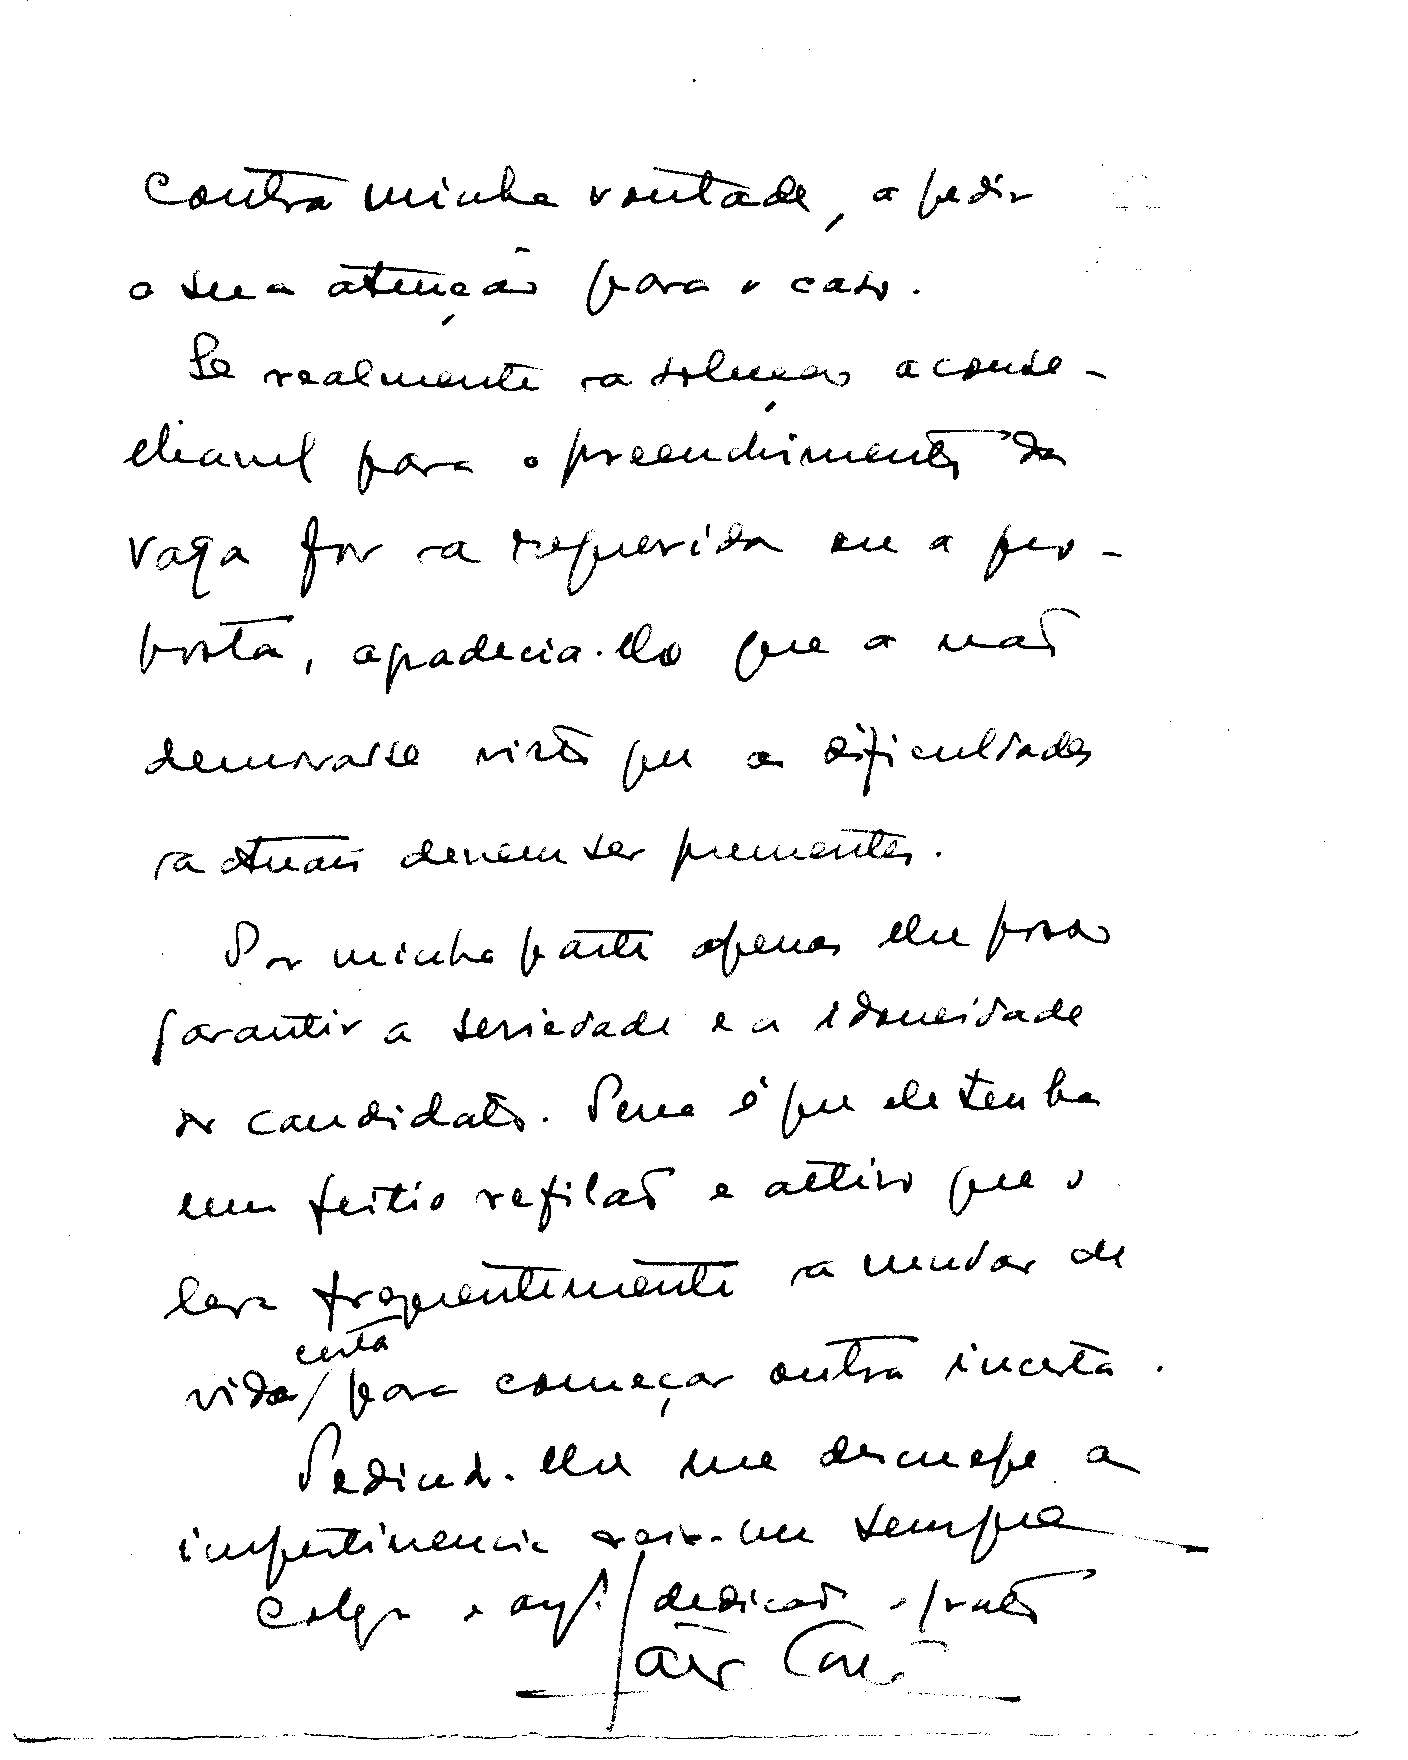 contra minha vontade, a pedir
a sua atenção para o caso.
Se realmente a solução aconse-
lhavel para o preenchimento da
vaga for a requerida ou a pro-
posta, agradecia-lho que a não
demorasse visto que as dificuldades
actuais devem ser prementes.
Por minha parte apenas lhe posso
garantir a seriedade e a idoneidade
do candidato. Pena é que ele tenha
um feitio refilão e altivo que o
leva frequentemente a mudar de
vida certa para começar outra incerta.
Pedindo-lhe me desculpe a
impertinencia sou-me sempre
Colega e amº. dedicado e grato